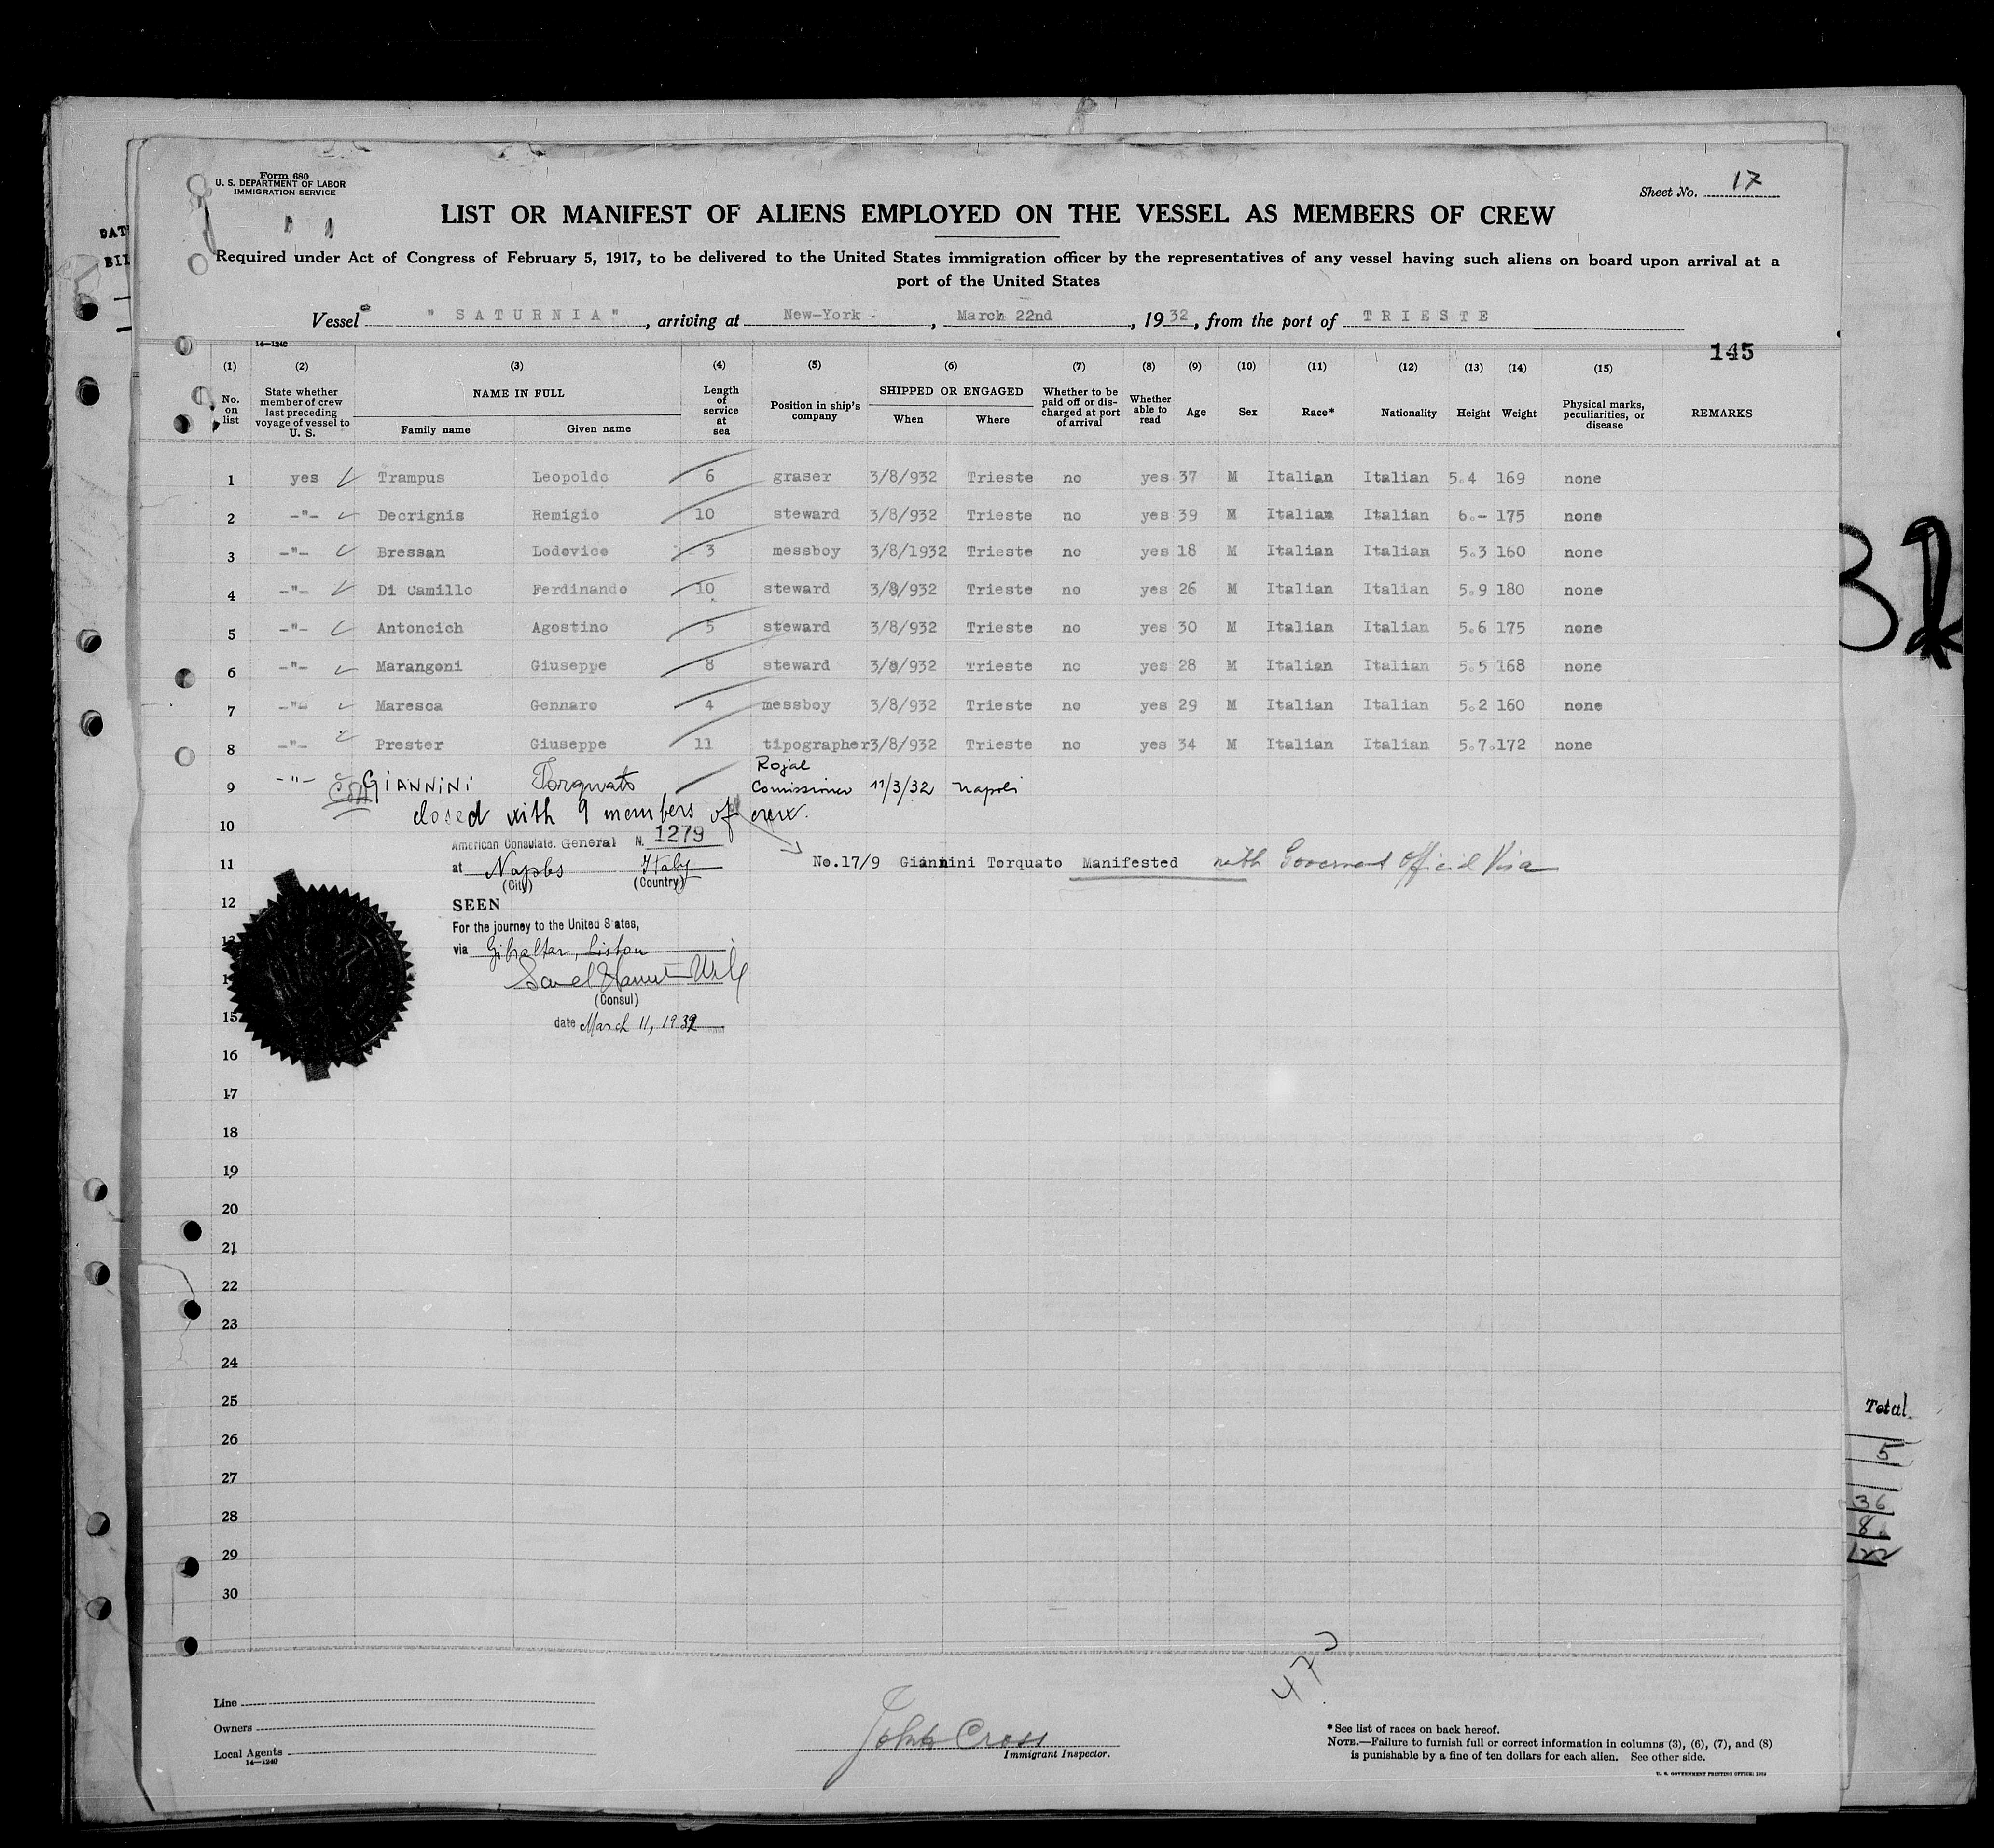 Form 680
U. S. DEPARTMENT OF LABOR
IMMIGRATION SERVICE
Sheet No. 17
LIST OR MANIFEST OF ALIENS EMPLOYED ON THE VESSEL AS MEMBERS OF CREW
Required under Act of Congress of February 5, 1917, to be delivered to the United States immigration officer by the representatives of any vessel having such aliens on board upon arrival at a
port of the United States
Vessel " SATURNIA ", arriving at New-York -, March 22nd, 1932, from the port of TRIESTE
14—1240
145
(1) (2) (3) (4) (5) (6) (7) (8) (9) (10) (11) (12) (13) (14) (15)
No. on list State whether member of crew last preceding voyage of vessel to U. S. NAME IN FULL Family name Given name Length of service at sea Position in ship's company SHIPPED OR ENGAGED When Where Whether to be paid off or discharged at port of arrival Whether able to read Age Sex Race* Nationality Height Weight Physical marks, peculiarities, or disease REMARKS
1 yes Trampus Leopoldo 6 graser 3/8/932 Trieste no yes 37 M Italian Italian 5.4 169 none
2 -"- Decrignis Remigio 10 steward 3/8/932 Trieste no yes 39 M Italian Italian 6.- 175 none
3 -"- Bressan Lodovico 3 messboy 3/8/1932 Trieste no yes 18 M Italian Italian 5.3 160 none
4 -"- Di Camillo Ferdinando 10 steward 3/8/932 Trieste no yes 26 M Italian Italian 5.9 180 none
5 -"- Antoncich Agostino 5 steward 3/8/932 Trieste no yes 30 M Italian Italian 5.6 175 none
6 -"- Marangoni Giuseppe 8 steward 3/8/932 Trieste no yes 28 M Italian Italian 5.5 168 none
7 -"- Maresca Gennaro 4 messboy 3/8/932 Trieste no yes 29 M Italian Italian 5.2 160 none
8 -"- Prester Giuseppe 11 tipographer 3/8/932 Trieste no yes 34 M Italian Italian 5.7. 172 none
9 -"- GIANNINI Torquato Rojal Comissioner 11/3/32 Napoli
closed with 9 members of crew.
10
American Consulate. General N. 1279
11 No.17/9 Giannini Torquato Manifested with Government Official Visa
at Naples Italy
(City) (Country)
12
SEEN
For the journey to the United States,
13
via Gibraltar, Lisbon
(Consul)
date March 11, 1932
15
16
17
18
19
20
21
22
23
24
25
26
27
28
29
30
Total
5
36
8
122
47
Line
Owners
Local Agents
14—1240
John Cross
Immigrant Inspector.
*See list of races on back hereof.
NOTE.—Failure to furnish full or correct information in columns (3), (6), (7), and (8)
is punishable by a fine of ten dollars for each alien. See other side.